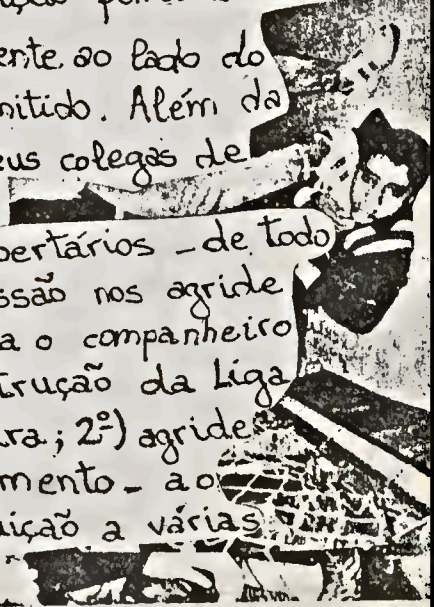 ente ao lado do
mitido. Além da
eus colegas de
bertários - de todo
ssão nos agride
a o companheiro
trução da Liga
ra; 2º) agride
mento - ao
uição a várias